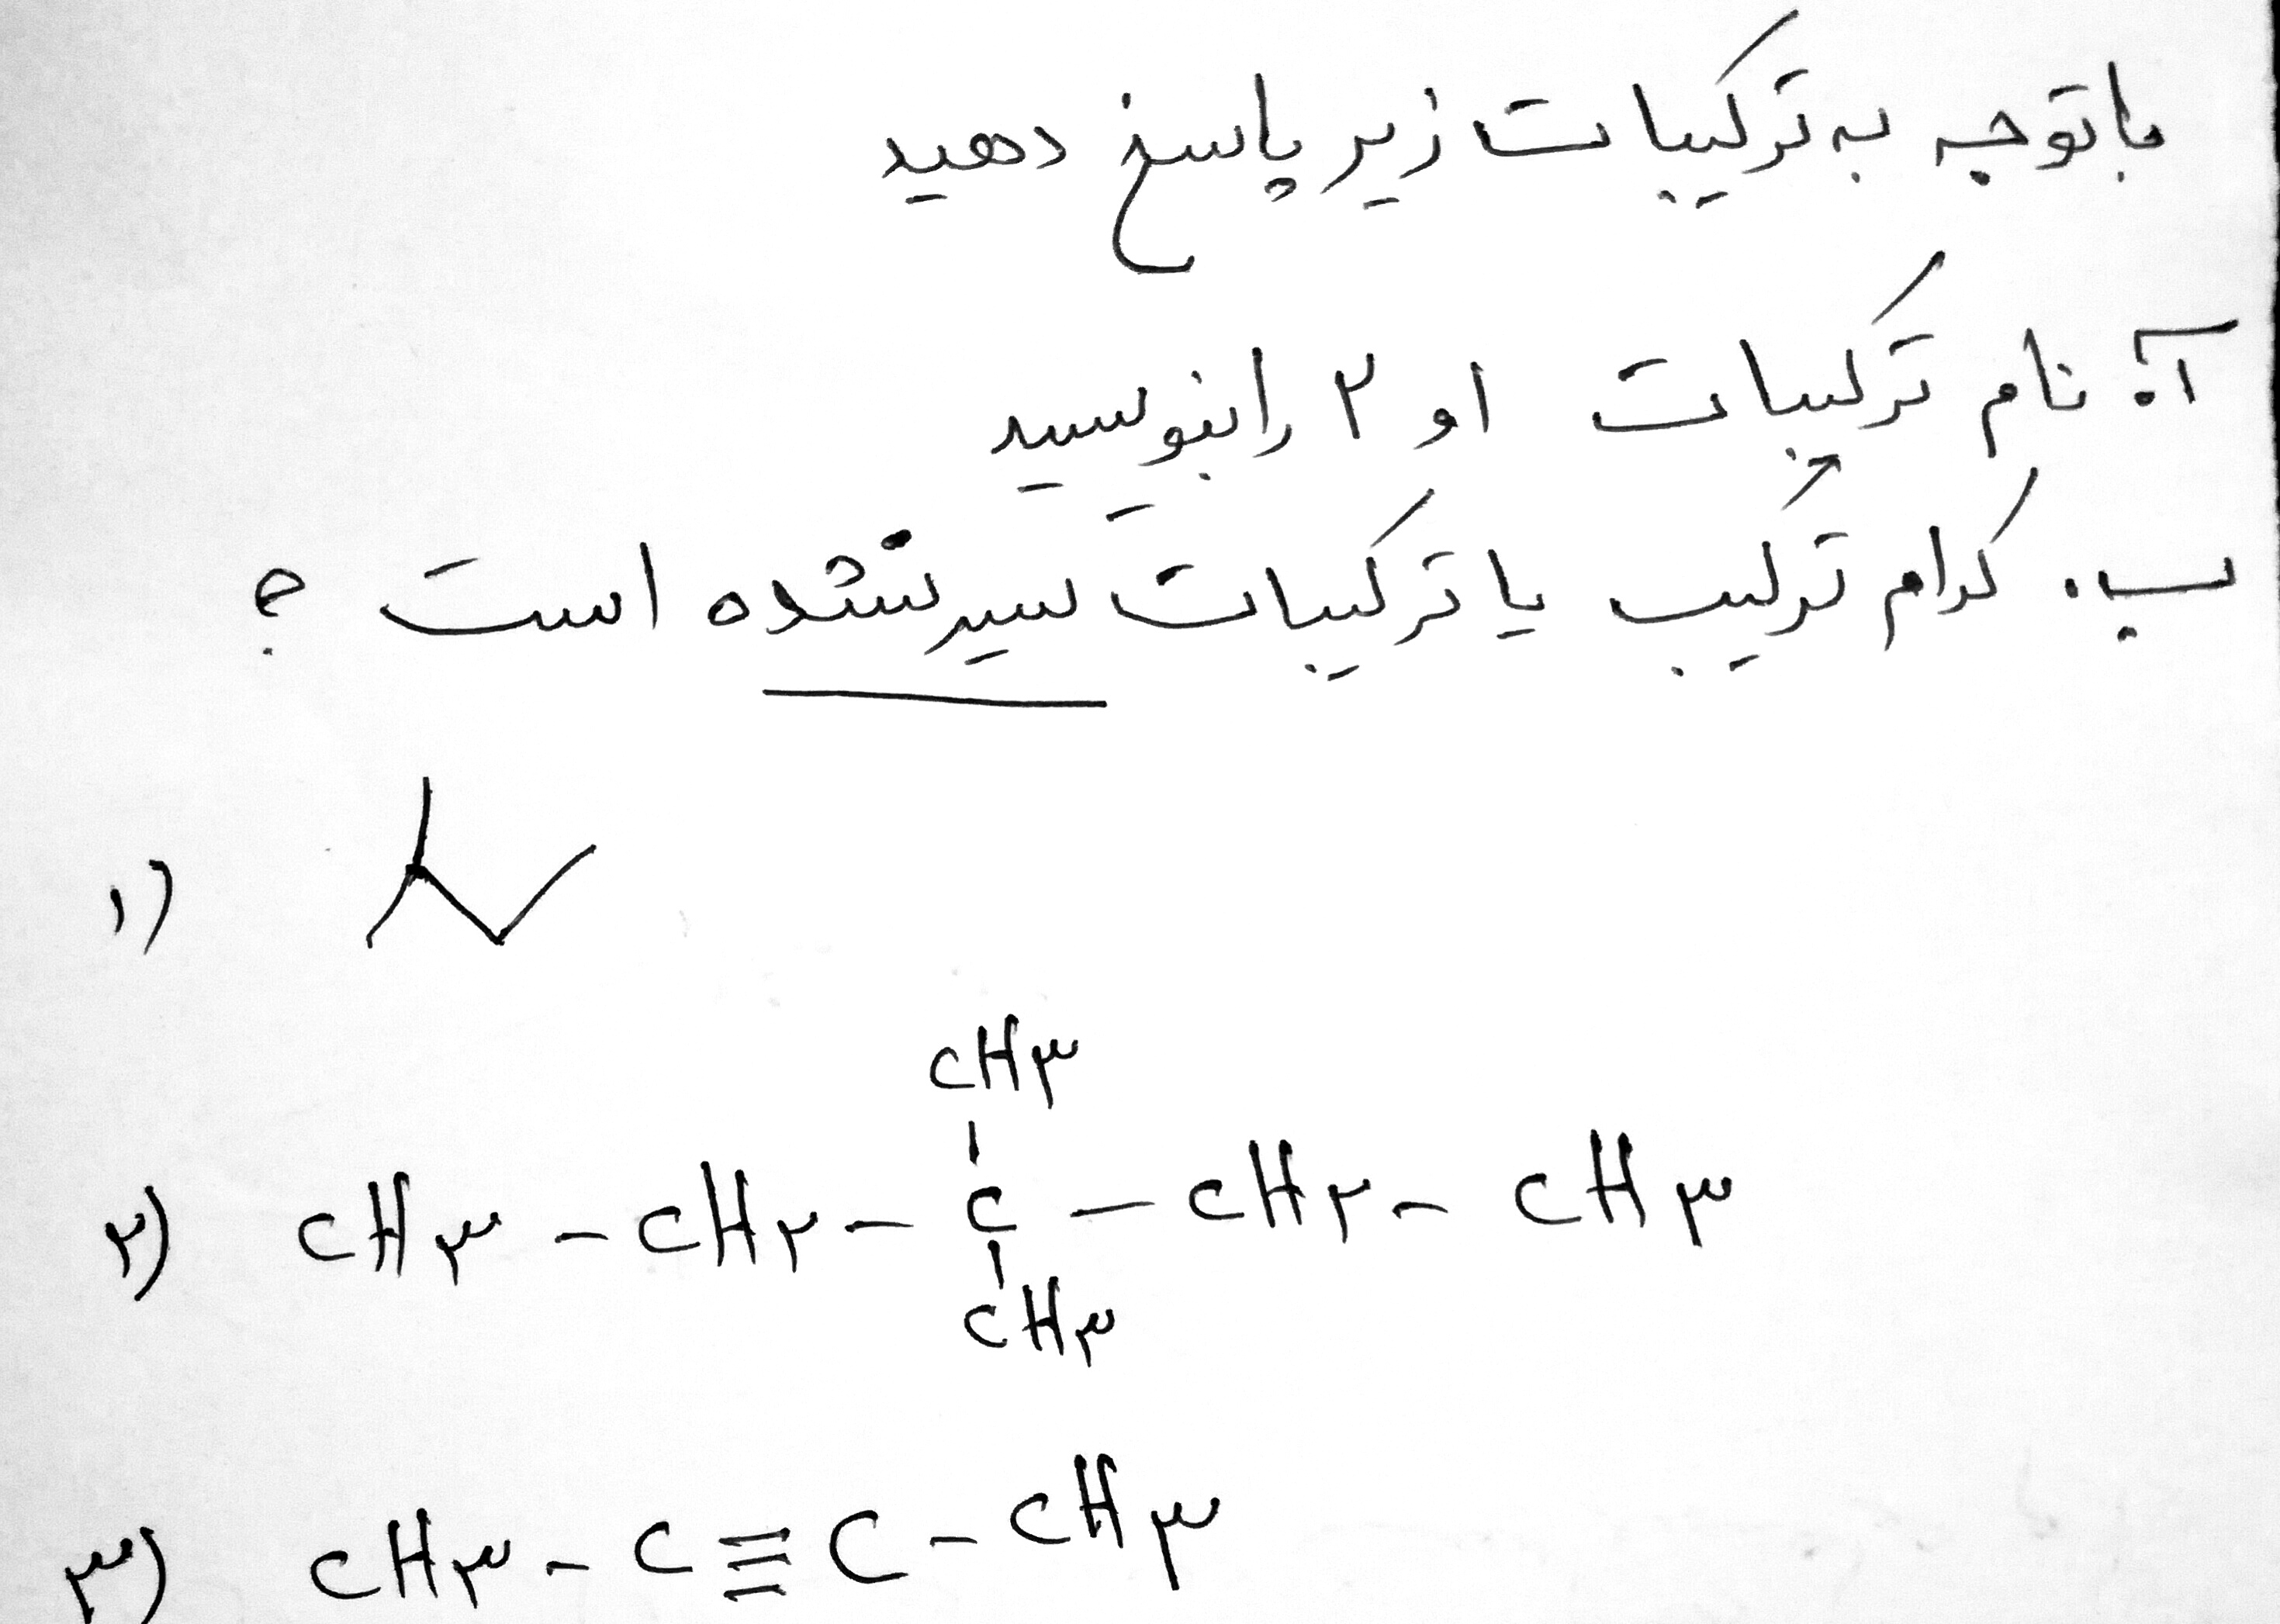 با توجه به ترکیبات زیر پاسخ دهید
آ. نام ترکیبات ۱ و ۲ را بنویسید
ب. کدام ترکیب یا ترکیبات سیر نشده است ؟
۱)
CH۳
۲) CH۳ - CH۲ - C - CH۲ - CH۳
CH۳
۳) CH۳ - C ≡ C - CH۳